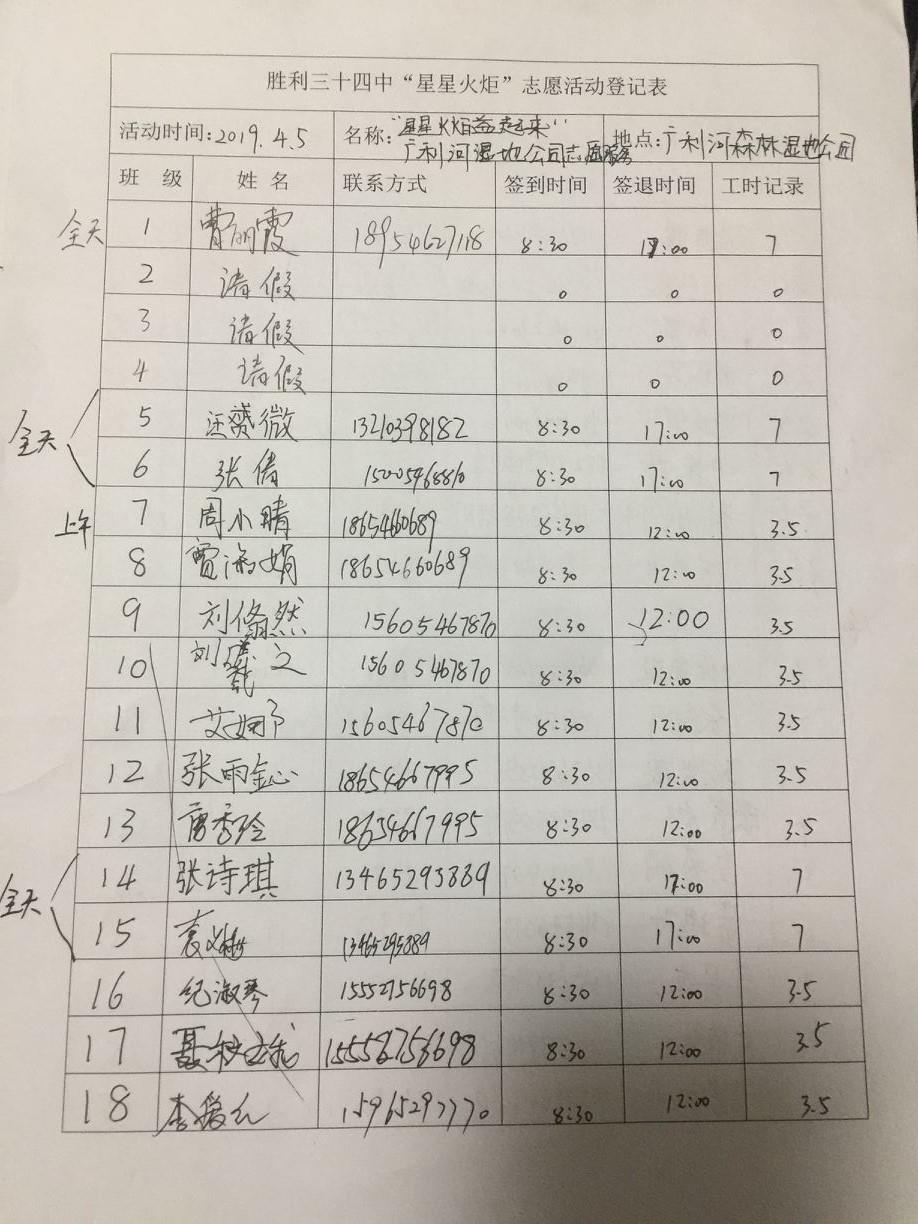 胜利三十四中“星星火炬”志愿活动登记表
活动时间:2019.4.5 名称:“星星火炬益起来” 地点:广利河森林湿地公园
广利河湿地公园志愿服务
班 级 姓 名 联系方式 签到时间 签退时间 工时记录
全天 1 曹丽霞 18954627118 8:30 17:00 7
2 请假 0 0 0
3 请假 0 0 0
4 请假 0 0 0
5 微 13210398182 8:30 17:00 7
全天
6 张倩 15005468810 8:30 17:00 7
上午 7 周小晴 18654660689 8:30 12:00 3.5
8 贾海娟 18654660689 8:30 12:00 3.5
9 刘倏然 15605467870 8:30 12:00 3.5
10 刘 之 15605467870 8:30 12:00 3.5
11 艾娜 15605467870 8:30 12:00 3.5
12 张雨鑫 18654667995 8:30 12:00 3.5
13 秀玲 18654667995 8:30 12:00 3.5
14 张诗琪 13465293889 8:30 17:00 7
全天
15 袁 13465293889 8:30 17:00 7
16 纪淑琴 15552756698 8:30 12:00 3.5
17 聂 8:30 12:00 3.5
18 李 15965297770 8:30 12:00 3.5